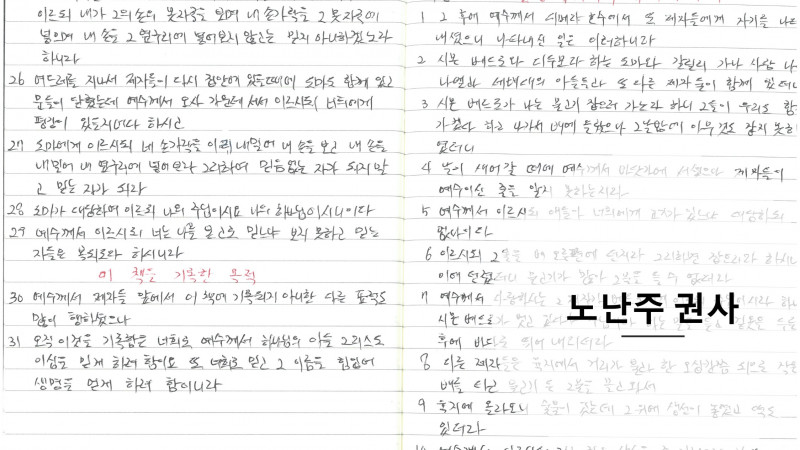 이르되 내가 그의 손의 못자국을 보며 내 손가락을 그 못자국에
넣으며 내 손을 그 옆구리에 넣어보지 않고는 믿지 아니하겠노라
하니라
26 여드레를 지나서 제자들이 다시 집안에 있을때에 도마도 함께 있고
문들이 닫혔는데 예수께서 오사 가운데 서서 이르시되 너희에게
평강이 있을지어다 하시고
27 도마에게 이르시되 네 손가락을 이리 내밀어 내 손을 보고 네 손을
내밀어 내 옆구리에 넣어보라 그리하여 믿음없는 자가 되지 말
고 믿는 자가 되라
28 도마가 대답하여 이르되 나의 주님이시요 나의 하나님이시니이다
29 예수께서 이르시되 너는 나를 본고로 믿느냐 보지 못하고 믿는
자들은 복되도다 하시니라
이 책을 기록한 목적
30 예수께서 제자들 앞에서 이 책에 기록되지 아니한 다른 표적도
많이 행하셨으나
31 오직 이것을 기록함은 너희로 예수께서 하나님의 아들 그리스도
이심을 믿게 하려 함이요 또 너희로 믿고 그 이름을 힘입어
생명을 얻게 하려 함이니라
1 그 후에 예수께서 디베랴 호수에서 또 제자들에게 자기를 나타
내셨으니 나타내신 일은 이러하니라
2 시몬 베드로와 디두모라 하는 도마와 갈릴리 가나 사람 나
나엘과 세베대의 아들들과 또 다른 제자 둘이 함께 있더니
3 시몬 베드로가 나는 물고기 잡으러 가노라 하니 그들이 우리도 함
가겠다 하고 나가서 배에 올랐으나 그날밤에 아무것도 잡지 못하
였더니
4 날이 새어갈 때에 예수께서 바닷가에 서셨으나 제자들이
예수이신 줄을 알지 못하는지라
5 예수께서 이르시되 애들아 너희에게 고기가 있느냐 대답하되
없나이다
6 이르시되 그물을 배 오른편에 던지라 그리하면 잡으리라 하시니
이에 던졌더니 물고기가 많아 그물을 들 수 없더라
7 예수께서 사랑하시는 그 제자가
시몬 베드로가 벗고 있다가
후에 바다로 뛰어 내리더라
노난주 권사
8 다른 제자들은 육지에서 거리가 불과 한 오십칸쯤 되므로 작은
배를 타고 물고기 든 그물을 끌고 와서
9 육지에 올라보니 숯불이 있는데 그 위에 생선이 놓였고 떡도
있더라